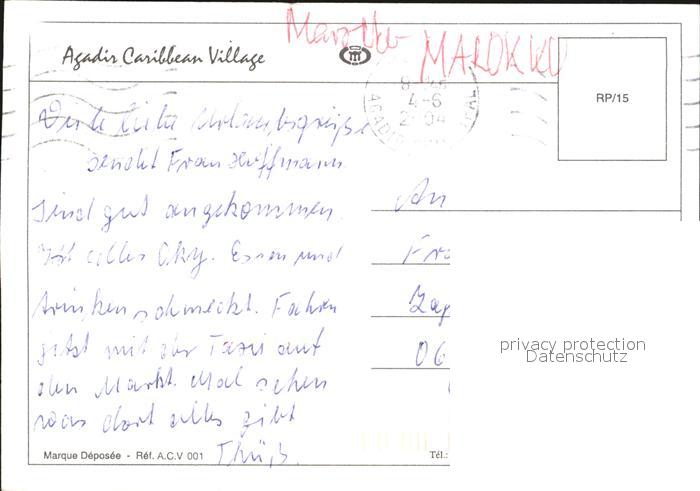 Maro
MAROKKO
Agadir Caribbean Village
4-6
AGADIR
RP/15
Viele liebe Urlaubsgrüße
sendet Frau Hoffmann.
Sind gut angekommen.
Ist alles Oky. Essen und
trinken schmeckt. Fahren
jetzt mit der Taxi auf
den Markt. Mal sehen
was dort alles gibt
Tschüß.
An
Fra
06
privacy protection
Datenschutz
Marque Déposée - Réf. A.C.V 001
Tél.: